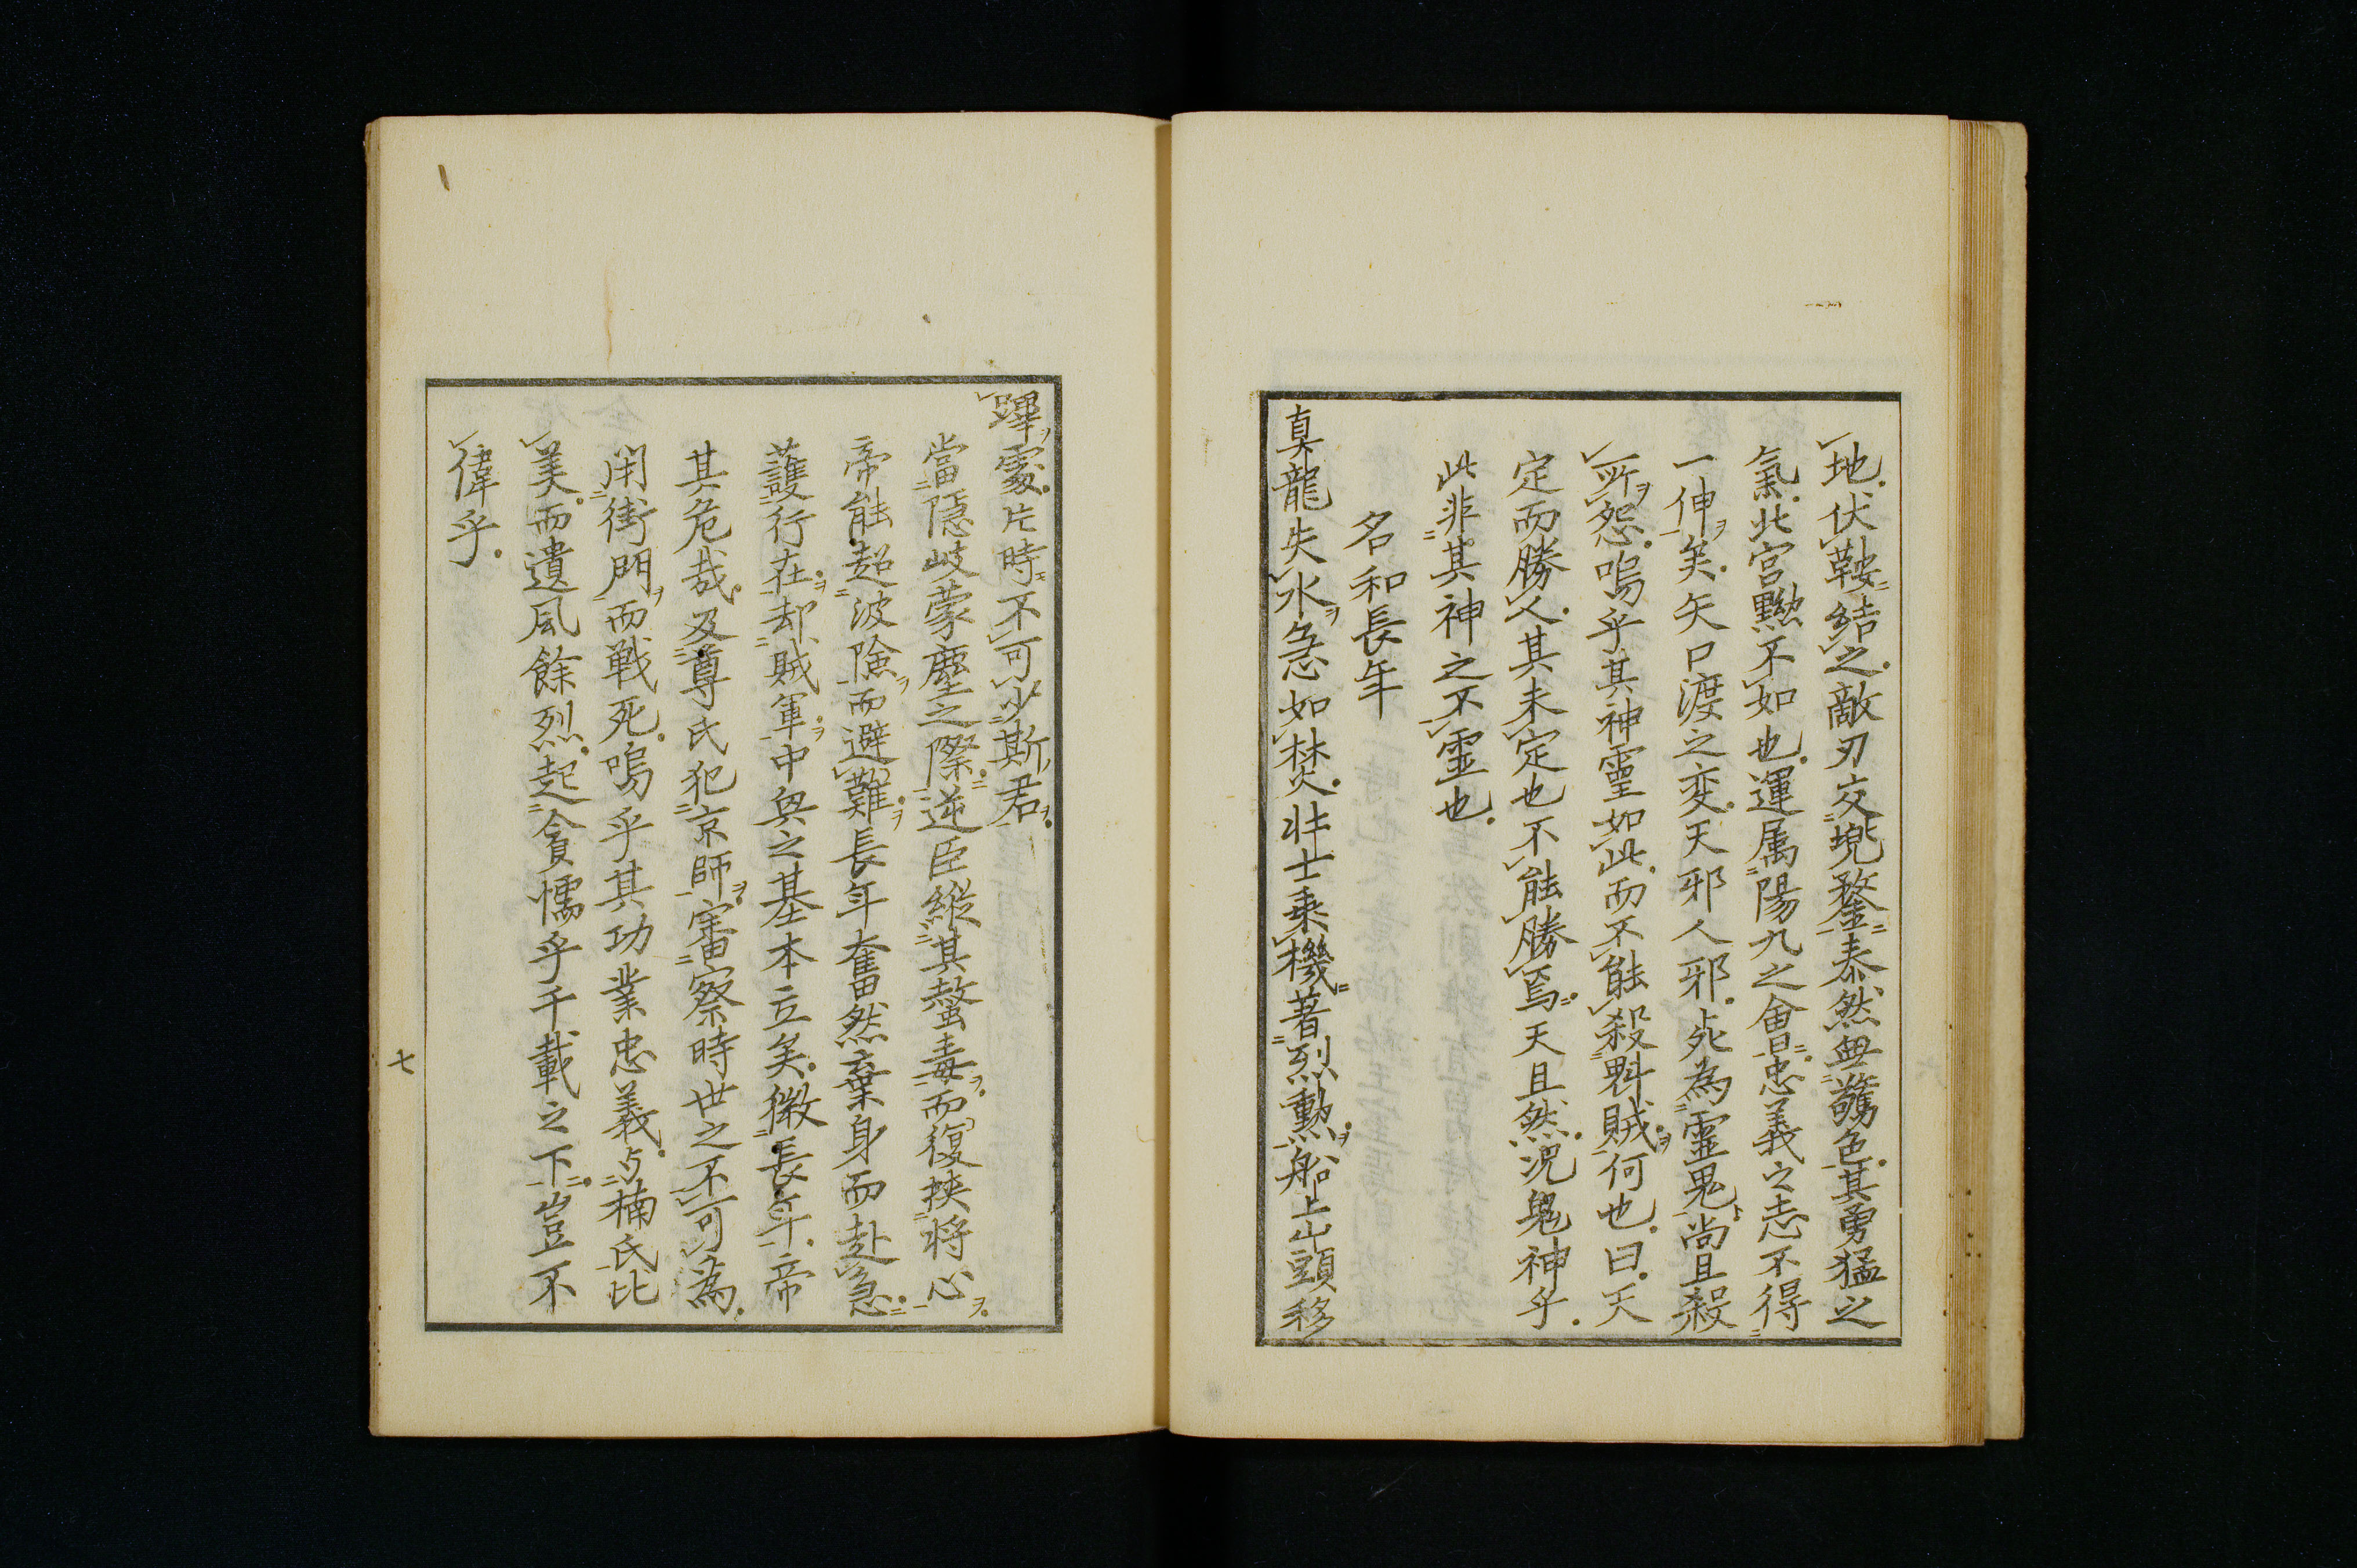 地伏鞍結之敵刃交兜鍪泰然無驚色其勇猛之
氣北宮黝不如也運属陽九之會忠義之志不得
一伸矣矢口渡之変天邪人邪死為靈鬼尚且殺
所怨嗚乎其神靈如此而不能殺魁賊何也曰天
定而勝人其未定也不能勝焉天且然况鬼神乎
此非其神之不霊也
名和長年
真龍失水急如焚壮士乗機著烈勲船上山頭移
蹕處片時不可少斯君
當隠岐蒙塵之際逆臣縦其螫毒而復挟将心
帝能超波険而避難長年奮然棄身而赴急
護行在却賊軍中興之基本立矣微長年帝
其危哉及尊氏犯京師審察時世之不可為
閉衛門而戦死嗚乎其功業忠義与楠氏比
美而遺風餘烈起貪懦乎千載之下豈不
偉乎
七